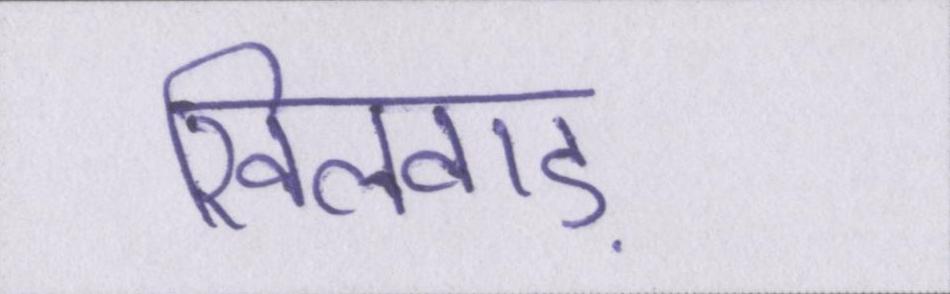 खिलवाड़